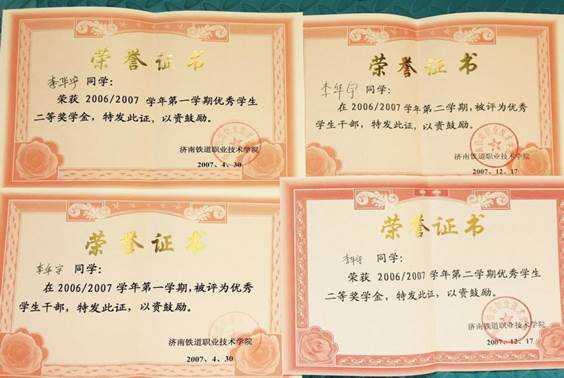 荣誉证书
李华宇 同学:
荣获 2006/2007 学年第一学期优秀学生
二等奖学金，特发此证，以资鼓励。
济南铁道职业技术学院
2007、4、30
荣誉证书
李华宇 同学:
在 2006/2007 学年第二学期，被评为优秀
学生干部，特发此证，以资鼓励。
济南铁道职业技术学院
2007、12、17
荣誉证书
李华宇 同学:
在 2006/2007 学年第一学期，被评为优秀
学生干部，特发此证，以资鼓励。
济南铁道职业技术学院
2007、4、30
荣誉证书
李华宇 同学:
荣获 2006/2007 学年第二学期优秀学生
二等奖学金，特发此证，以资鼓励。
济南铁道职业技术学院
2007、12、17